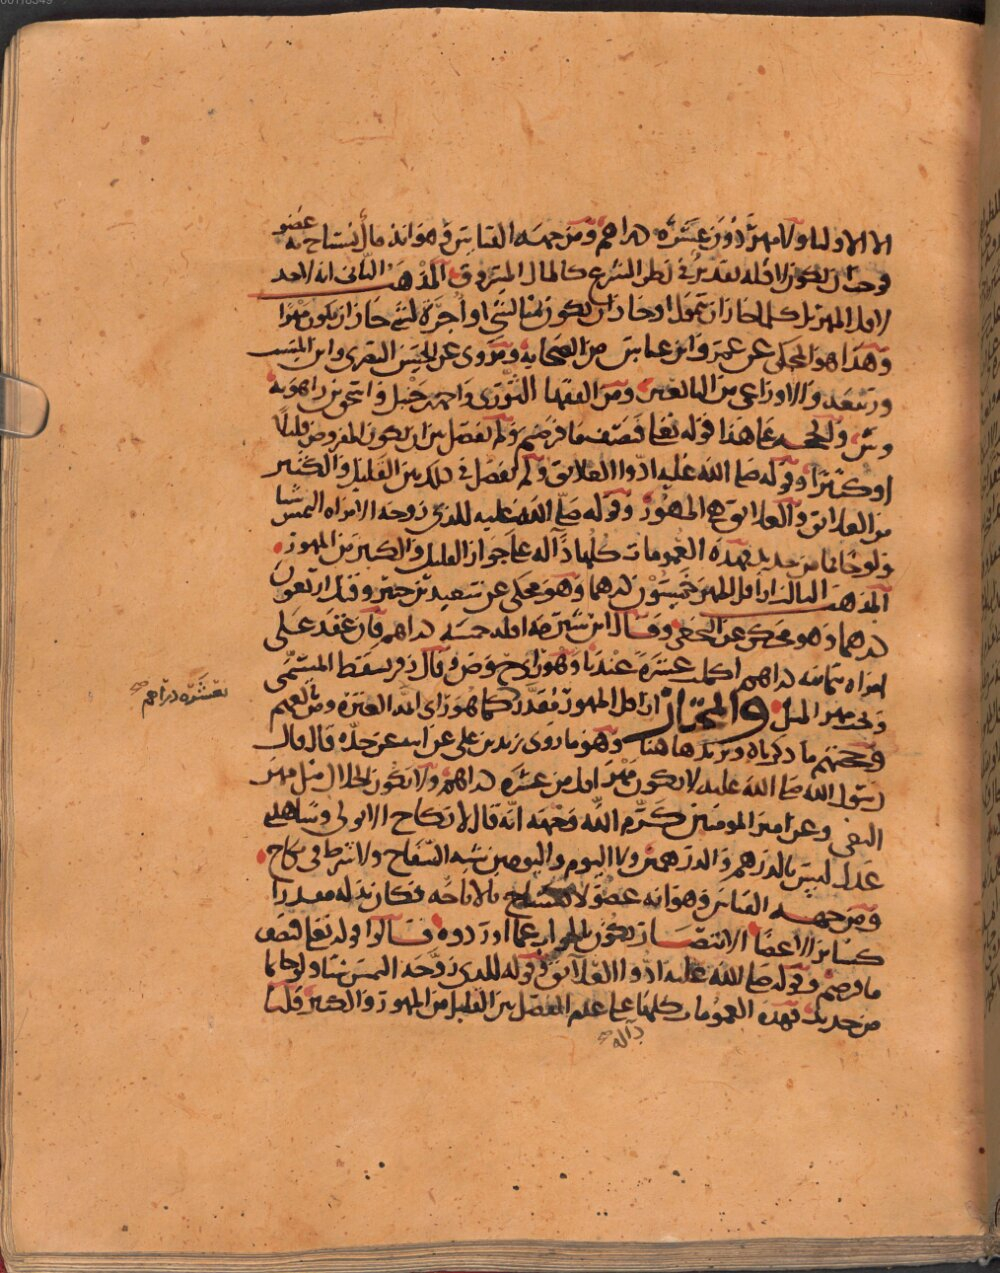 الا الاوليا ولا مهر دون عشره دراهم ومن جهه القياس وهو انه مال يستباح به عضو
وجب ان يكون لاقله تقدير في نظر الشرع كالمال المسروق المذهب الثاني انه لا حد
لاقل المهر بل كلما جاز ان يتمول او جاز ان يكون ثمنا لشي او اجرة لشي جاز ان يكون مهرا
وهذا هو المحكي عن عمر وابن عباس من الصحابه ومروي عن الحسن البصري وابن المسيب
وربيعه والاوزاعي من التابعين ومن الفقها الثوري واحمد حنبل واسحق بن راهويه
وش والحجه على هذا قوله تعالى فنصف ما فرضتم ولم يفصل بين ان يكون المفروض قليلا
او كثيرا وقوله صلى الله عليه ادوا العلائق ولم يفصل في ذلك بين القليل والكثير
من العلائق والعلائق هي المهور وقوله صلى الله عليه للذي زوجه الامراه التمس شيا
ولو خاتما من حديد فهذه العمومات كلها دآله على جواز القليل والكثير من المهور
المذهب الثالث ان اقل المهر خمسون درهما وهو محكي عن سعيد بن جبير وقيل اربعون
درهما وهو محكي عن النخعي وقال ابن شبرمه اقله خمسه دراهم فان عقد على
امراه ثمانيه دراهم اكملت عشرة عندنا وهو راي ح وص وف وقال زفر يسقط المسمى
وتجب مهر المثل والمختار ان اقل المهور مقدر كما هو راي ائمه العتره ومن تابعهم
بعشره دراهم صح
وحجتهم ما ذكرناه ونزيد هاهنا وهو ما روى زيد بن علي عن ابيه عن جده قال قال
رسول الله صلى الله عليه لا يكون مهر اقل من عشره دراهم ولا يكون الحلال مثل مهر
البغي وعن امير المومنين كرم الله وجهه انه قال لا نكاح الا بولي وشاهدي
عدل ليس بالدرهم والدرهمين ولا اليوم واليومين شبه السفاح ولا شرط في نكاح
ومن جهه القياس وهو انه عضو لا يستباح بالاباحه فكان بدله مقدرا
كسائر الاعضا الانتصار يكون بالجواب عما اوردوه قالوا قوله تعالى فنصف
ما فرضتم وقوله صلى الله عليه ادوا العلائق وقوله للذي زوجه التمس شيا ولو خاتما
من حديد فهذه العمومات كلها على عدم الفصل بين القليل من المهور والكثير قلنا
دآله صح